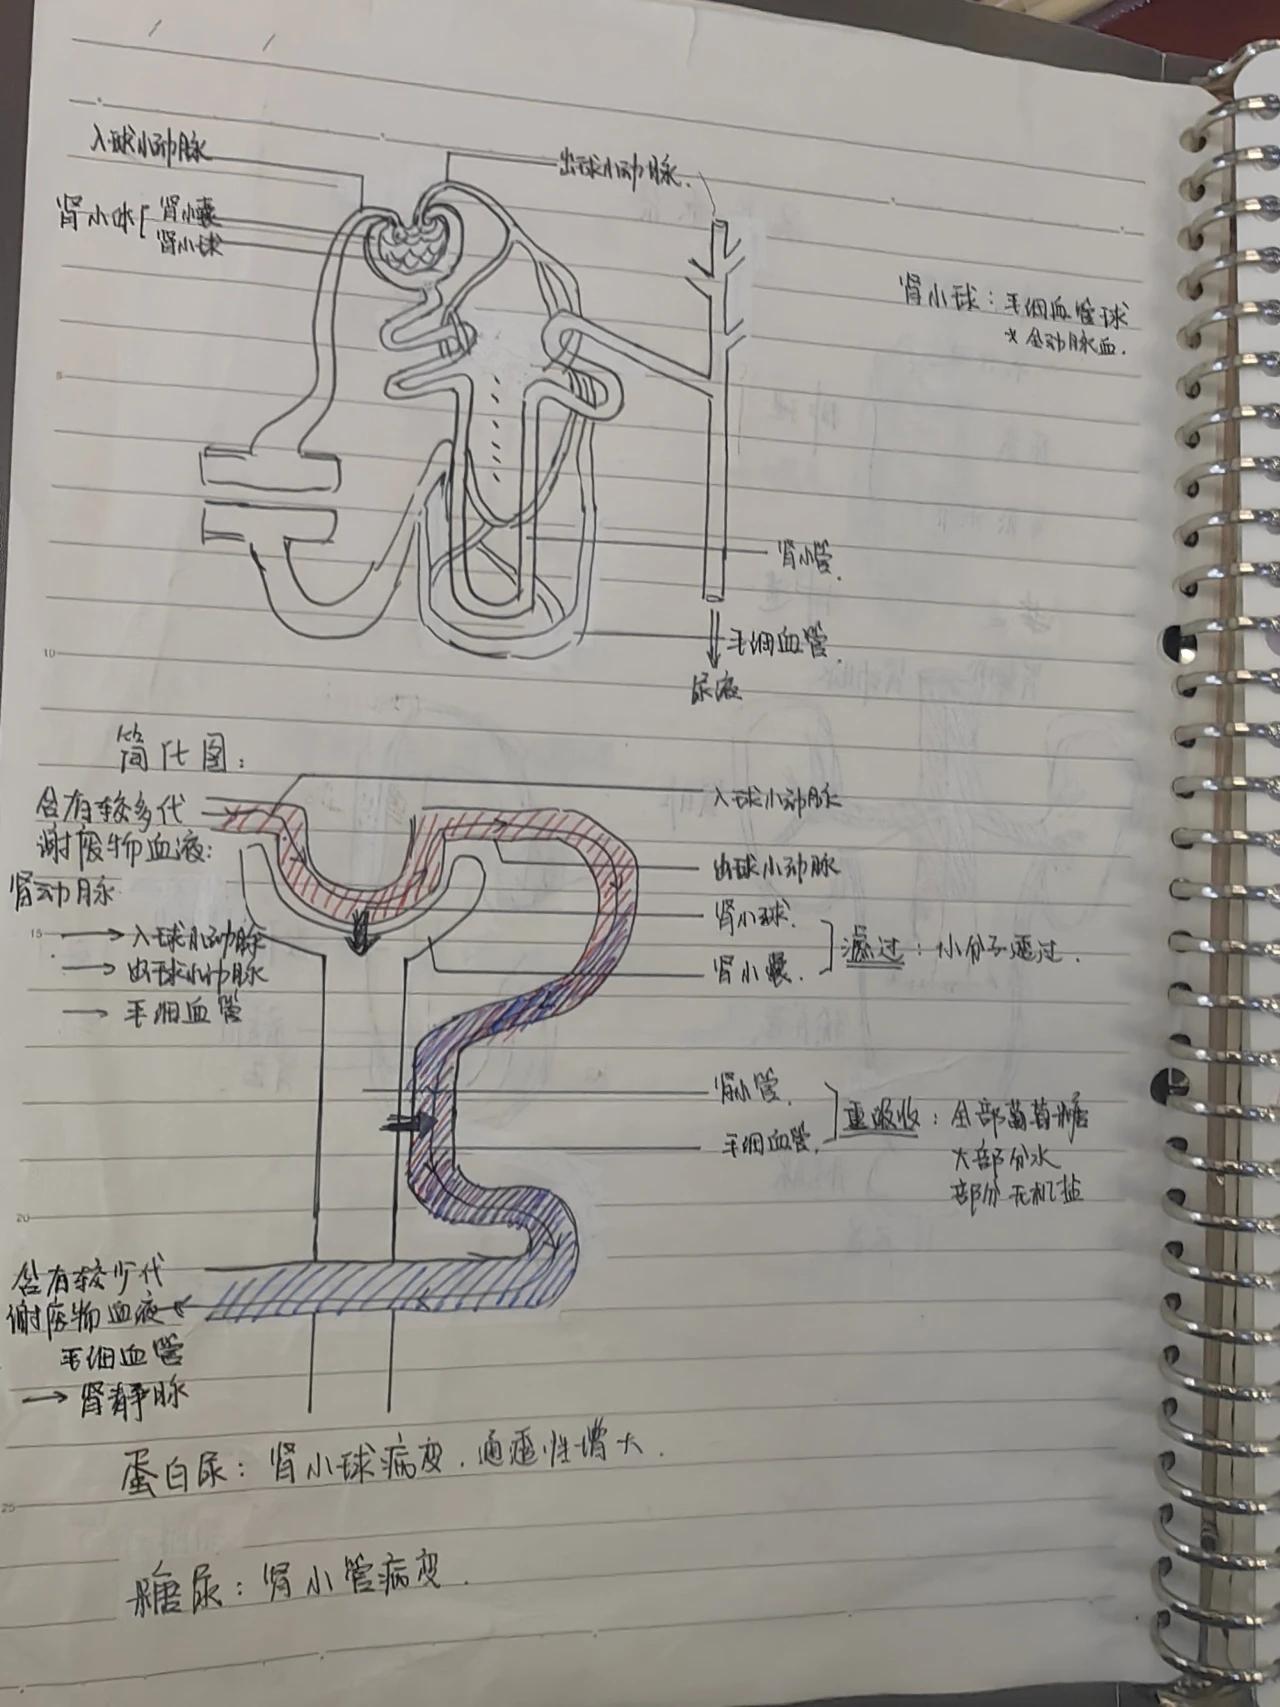 入球小动脉
出球小动脉.
肾小体[肾小囊
肾小球
肾小球：毛细血管球
含动脉血.
肾小管.
毛细血管.
尿液
简化图：
含有较多代
谢废物血液：
肾动脉
→入球小动脉
→出球小动脉
→毛细血管
入球小动脉
出球小动脉
肾小球.
肾小囊.
滤过：小分子透过.
肾小管.
毛细血管.
重吸收：全部葡萄糖
大部分水
部分无机盐
含有较少代
谢废物血液
毛细血管
→肾静脉
蛋白尿：肾小球病变.通透性增大.
糖尿：肾小管病变.
5
10
15
20
25